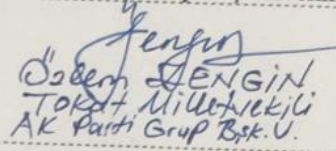 Özlem ZENGİN
Tokat Milletvekili
AK Parti Grup Bşk. V.